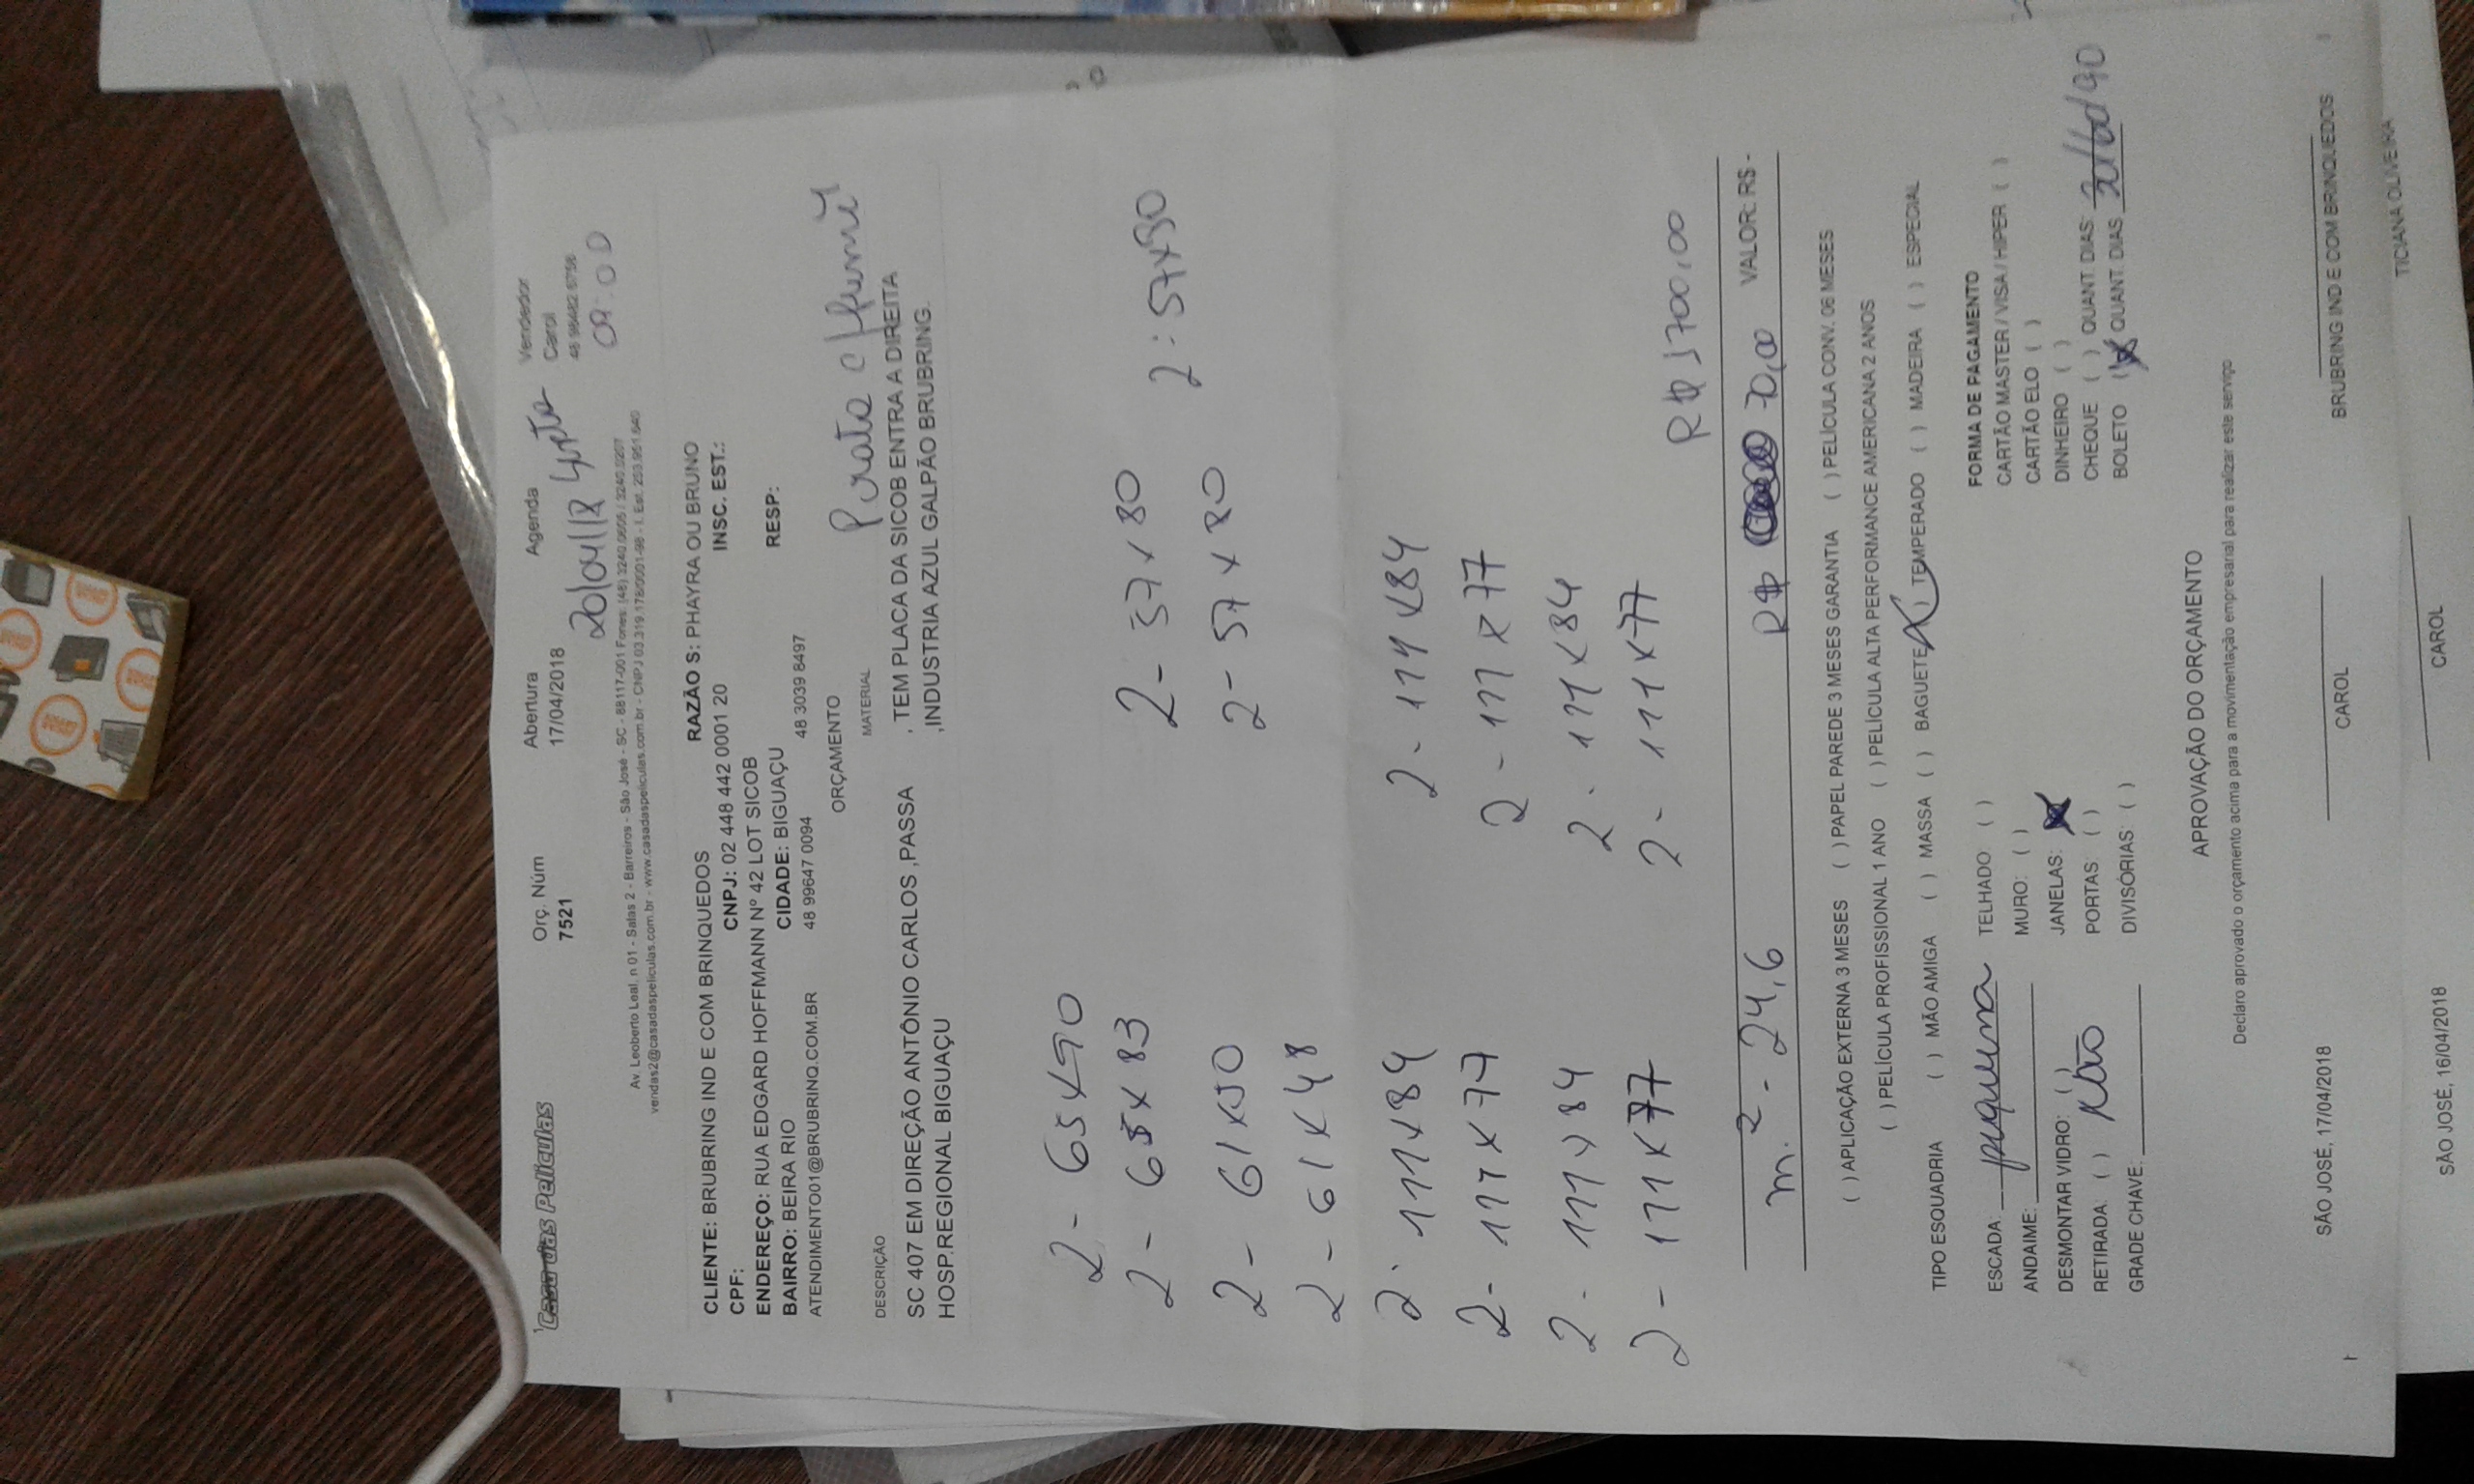 Casa das Películas
Orç. Núm Abertura Agenda Vendedor
7521 17/04/2018 20/04/18 Carol
48 98482 6758
09:00
Av. Leoberto Leal, n 01 - Salas 2 - Barreiros - São José - SC - 88117-001 Fones: (48) 3240.0605 / 3240.0207
vendas2@casadaspeliculas.com.br - www.casadaspeliculas.com.br - CNPJ 03.319.178/0001-98 - I. Est. 253.951.640
CLIENTE: BRUBRING IND E COM BRINQUEDOS RAZÃO S: PHAYRA OU BRUNO
CPF: CNPJ: 02 448 442 0001 20 INSC. EST.:
ENDEREÇO: RUA EDGARD HOFFMANN Nº 42 LOT SICOB
BAIRRO: BEIRA RIO CIDADE: BIGUAÇU RESP:
ATENDIMENTO01@BRUBRINQ.COM.BR 48 99647 0094 48 3039 8497
ORÇAMENTO
DESCRIÇÃO MATERIAL Prata c/fumê
SC 407 EM DIREÇÃO ANTÔNIO CARLOS ,PASSA , TEM PLACA DA SICOB ENTRA A DIREITA
HOSP.REGIONAL BIGUAÇU ,INDUSTRIA AZUL GALPÃO BRUBRING.
2 - 65x90
2 - 65x83 2 - 57x80 2 - 57x90
2 - 61x50 2 - 57x80
2 - 61x48
2 - 111x84 2 - 111x84
2 - 111x77 2 - 111x77
2 - 111x84 2 - 111x84
2 - 111x77 2 - 111x77
R$ 1700,00
m.² - 24,6 R$ 70,00 VALOR: R$ -
( ) APLICAÇÃO EXTERNA 3 MESES ( ) PAPEL PAREDE 3 MESES GARANTIA ( ) PELÍCULA CONV. 06 MESES
( ) PELÍCULA PROFISSIONAL 1 ANO ( ) PELÍCULA ALTA PERFORMANCE AMERICANA 2 ANOS
TIPO ESQUADRIA ( ) MÃO AMIGA ( ) MASSA ( ) BAGUETE (X) TEMPERADO ( ) MADEIRA ( ) ESPECIAL
FORMA DE PAGAMENTO
ESCADA: pequena TELHADO ( ) CARTÃO MASTER / VISA / HIPER ( )
ANDAIME: MURO: ( ) CARTÃO ELO ( )
DESMONTAR VIDRO: ( ) JANELAS: (X) DINHEIRO ( )
RETIRADA: ( ) Não PORTAS: ( ) CHEQUE ( ) QUANT. DIAS:
GRADE CHAVE: DIVISÓRIAS: ( ) BOLETO (X) QUANT. DIAS
APROVAÇÃO DO ORÇAMENTO
Declaro aprovado o orçamento acima para a movimentação empresarial para realizar este serviço
SÃO JOSÉ, 17/04/2018 CAROL BRUBRING IND E COM BRINQUEDOS
SÃO JOSÉ, 16/04/2018 CAROL TICIANA OLIVEIRA